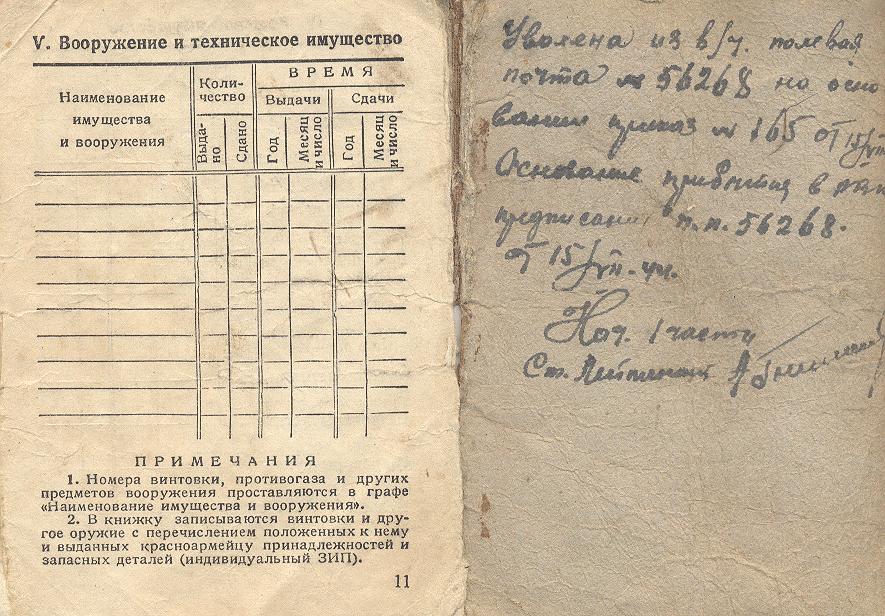 V. Вооружение и техническое имущество
Наименование
имущества
и вооружения
Коли-
чество
ВРЕМЯ
Выдачи
Сдачи
Выда-
но
Сдано
Год
Месяц
и число
Год
Месяц
и число
ПРИМЕЧАНИЯ
1. Номера винтовки, противогаза и других
предметов вооружения проставляются в графе
«Наименование имущества и вооружения».
2. В книжку записываются винтовки и дру-
гое оружие с перечислением положенных к нему
и выданных красноармейцу принадлежностей и
запасных деталей (индивидуальный ЗИП).
11
Уволена из в/ч. полевая
почта № 56268 на осно
вании приказ № 165 от 15/VIII
Основание прибытия в
предписание п.п. 56268.
от 15/VIII-44.
Нач. 1 части
Ст. Лейтенант